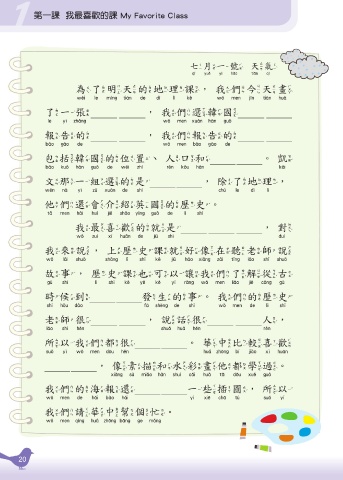 1 第一課 我最喜歡的課 My Favorite Class
七月一號 天氣
qī yuè yí hào tiān qì
為了明天的地理課，我們今天畫
wèi le míng tiān de dì lǐ kè wǒ men jīn tiān huà
了一張，我們還韓國
le yì zhāng wǒ men hán guó
報告的，我們報告的
bào gào de wǒ men bào gào de
包括韓國的位置、人口和。凱
bāo kuò hán guó de wèi zhì rén kǒu hàn kǎi
文那一組選的是，除了地理，
wén nà yì zǔ xuǎn de shì chú le dì lǐ
他們還會介紹英國的歷史。
tā men hái huì jiè shào yīng guó de lì shǐ
我最喜歡的就是，對
wǒ zuì xǐ huān de jiù shì duì
我來說，上歷史課就好像在聽老師說
wǒ lái shuō shàng lì shǐ kè jiù hǎo xiàng zài tīng lǎo shī shuō
故事，歷史課也可以讓我們了解從古
gù shì lì shǐ kè yě kě yǐ ràng wǒ men liǎo jiě cóng gǔ
時候到發生的事。我們的歷史
shí hòu dào fā shēng de shì wǒ men de lì shǐ
老師很，說話很人，
lǎo shī hěn shuō huà hěn rén
所以我們都很。華中比較喜歡
suǒ yǐ wǒ men dōu hěn huá zhōng bǐ jiào xǐ huān
，像素描和水彩畫他都學過。
xiàng sù miáo hàn shuǐ cǎi huà tā dōu xué guò
我們的海報還一些插圖，所以
wǒ men de hǎi bào hái yì xiē chā tú suǒ yǐ
我們請華中幫個忙。
wǒ men qǐng huá zhōng bāng ge máng
20